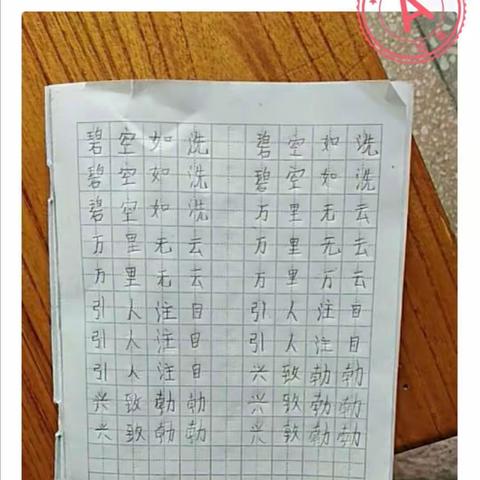 A
碧空如洗 碧空如洗
碧空如洗 碧空如洗
碧空如洗 万里无云
万里无云 万里无云
万里无云 万里万云
引人注目 引人注目
引人注目 引人注目
引人注目 兴致勃勃
兴致勃勃 兴致勃勃
兴致勃勃 兴致勃勃